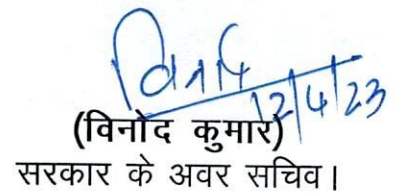 12/4/23
(विनोद कुमार)
सरकार के अवर सचिव।